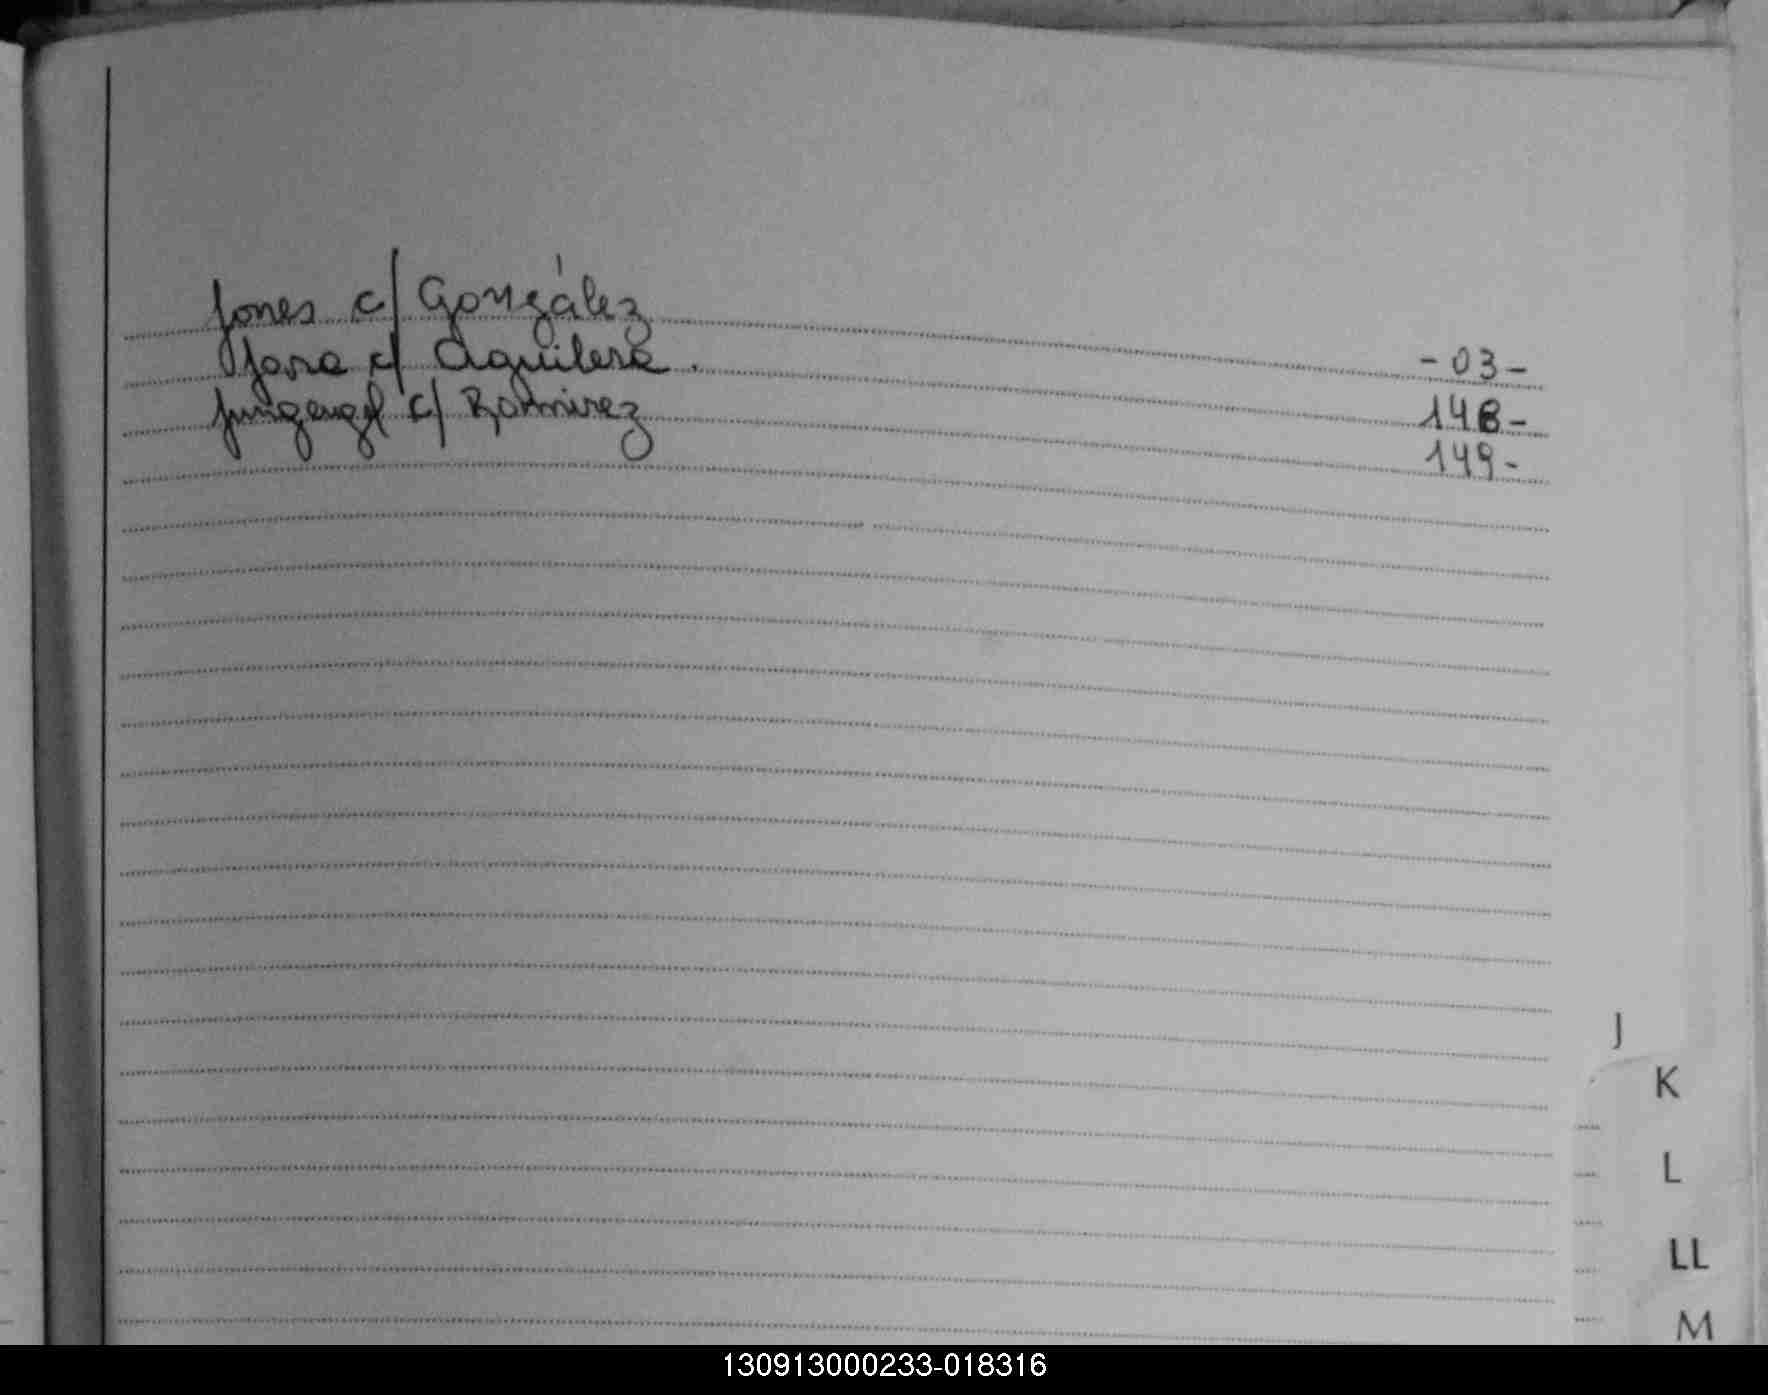 Jones c/ González -03-
Jara c/ Aguilera. 148-
c/ Ramirez 149-
J
K
L
LL
M
130913000233-018316